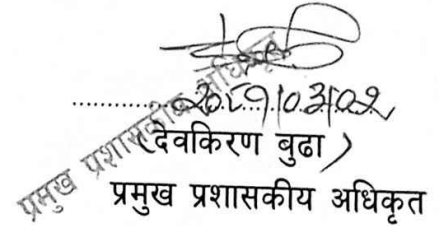 २०८१।०३।०२
(देवकिरण बुढा)
प्रमुख प्रशासकीय अधिकृत
प्रमुख प्रशासकीय अधिकृत